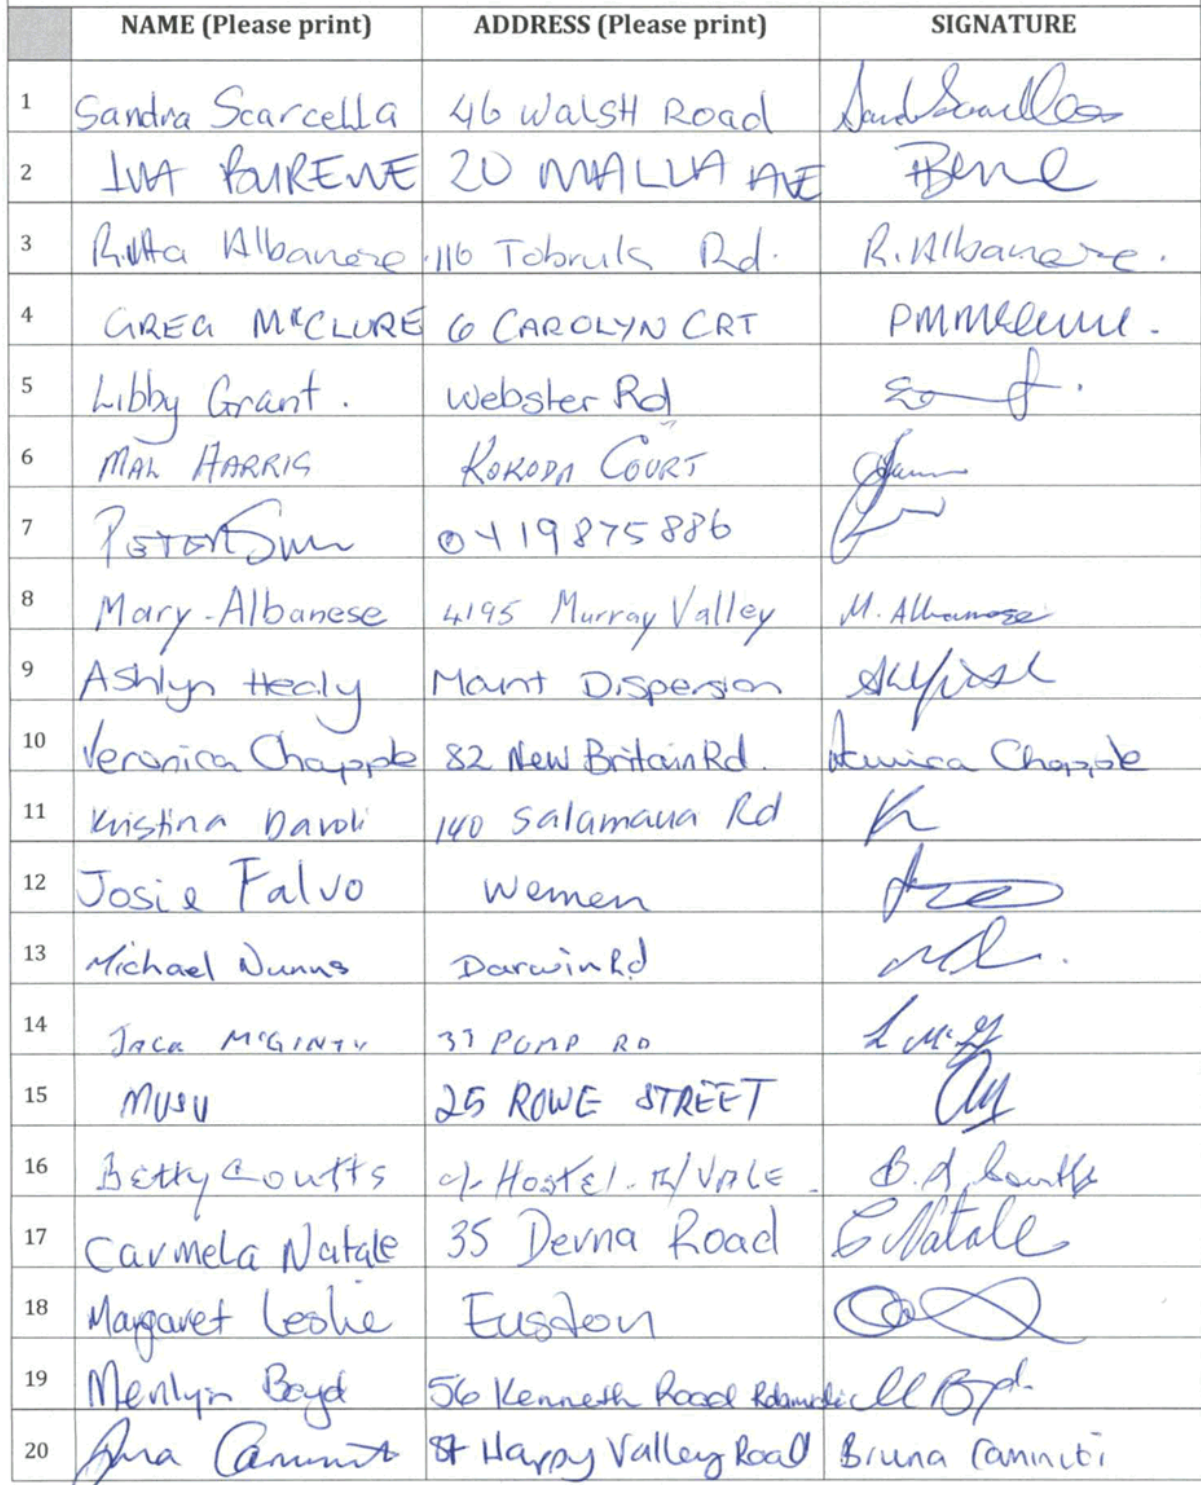 NAME (Please print) ADDRESS (Please print) SIGNATURE
1 Sandra Scarcella 46 Walsh Road
2 20 MALLIA AVE
3 Albanese 116 Tobruk Rd. R. Albanese.
4 GREG McCLURE 6 CAROLYN CRT
5 Libby Grant. Webster Rd
6 MAL HARRIS KOKODA COURT
7 PETER 0419875886
8 Mary-Albanese 4195 Murray Valley M. Albanese
9 Ashlyn Healy Mount Dispersion
10 Veronica Chapple 82 New Britain Rd. Chapple
11 Kristina Davoli 140 Salamaua Rd
12 Josie Falvo Wemen
13 Michael Nunns Darwin Rd
14 JACK McGINTY 33 PUMP RD
15 25 ROWE STREET
16 Betty Coutts c/- Hostel. R/VALE. B.A. Coutts
17 Carmela Natale 35 Derna Road C Natale
18 Margaret Leslie Euston
19 Merilyn Boyd 56 Kenneth Road
20 Happy Valley Road Bruna Caminiti